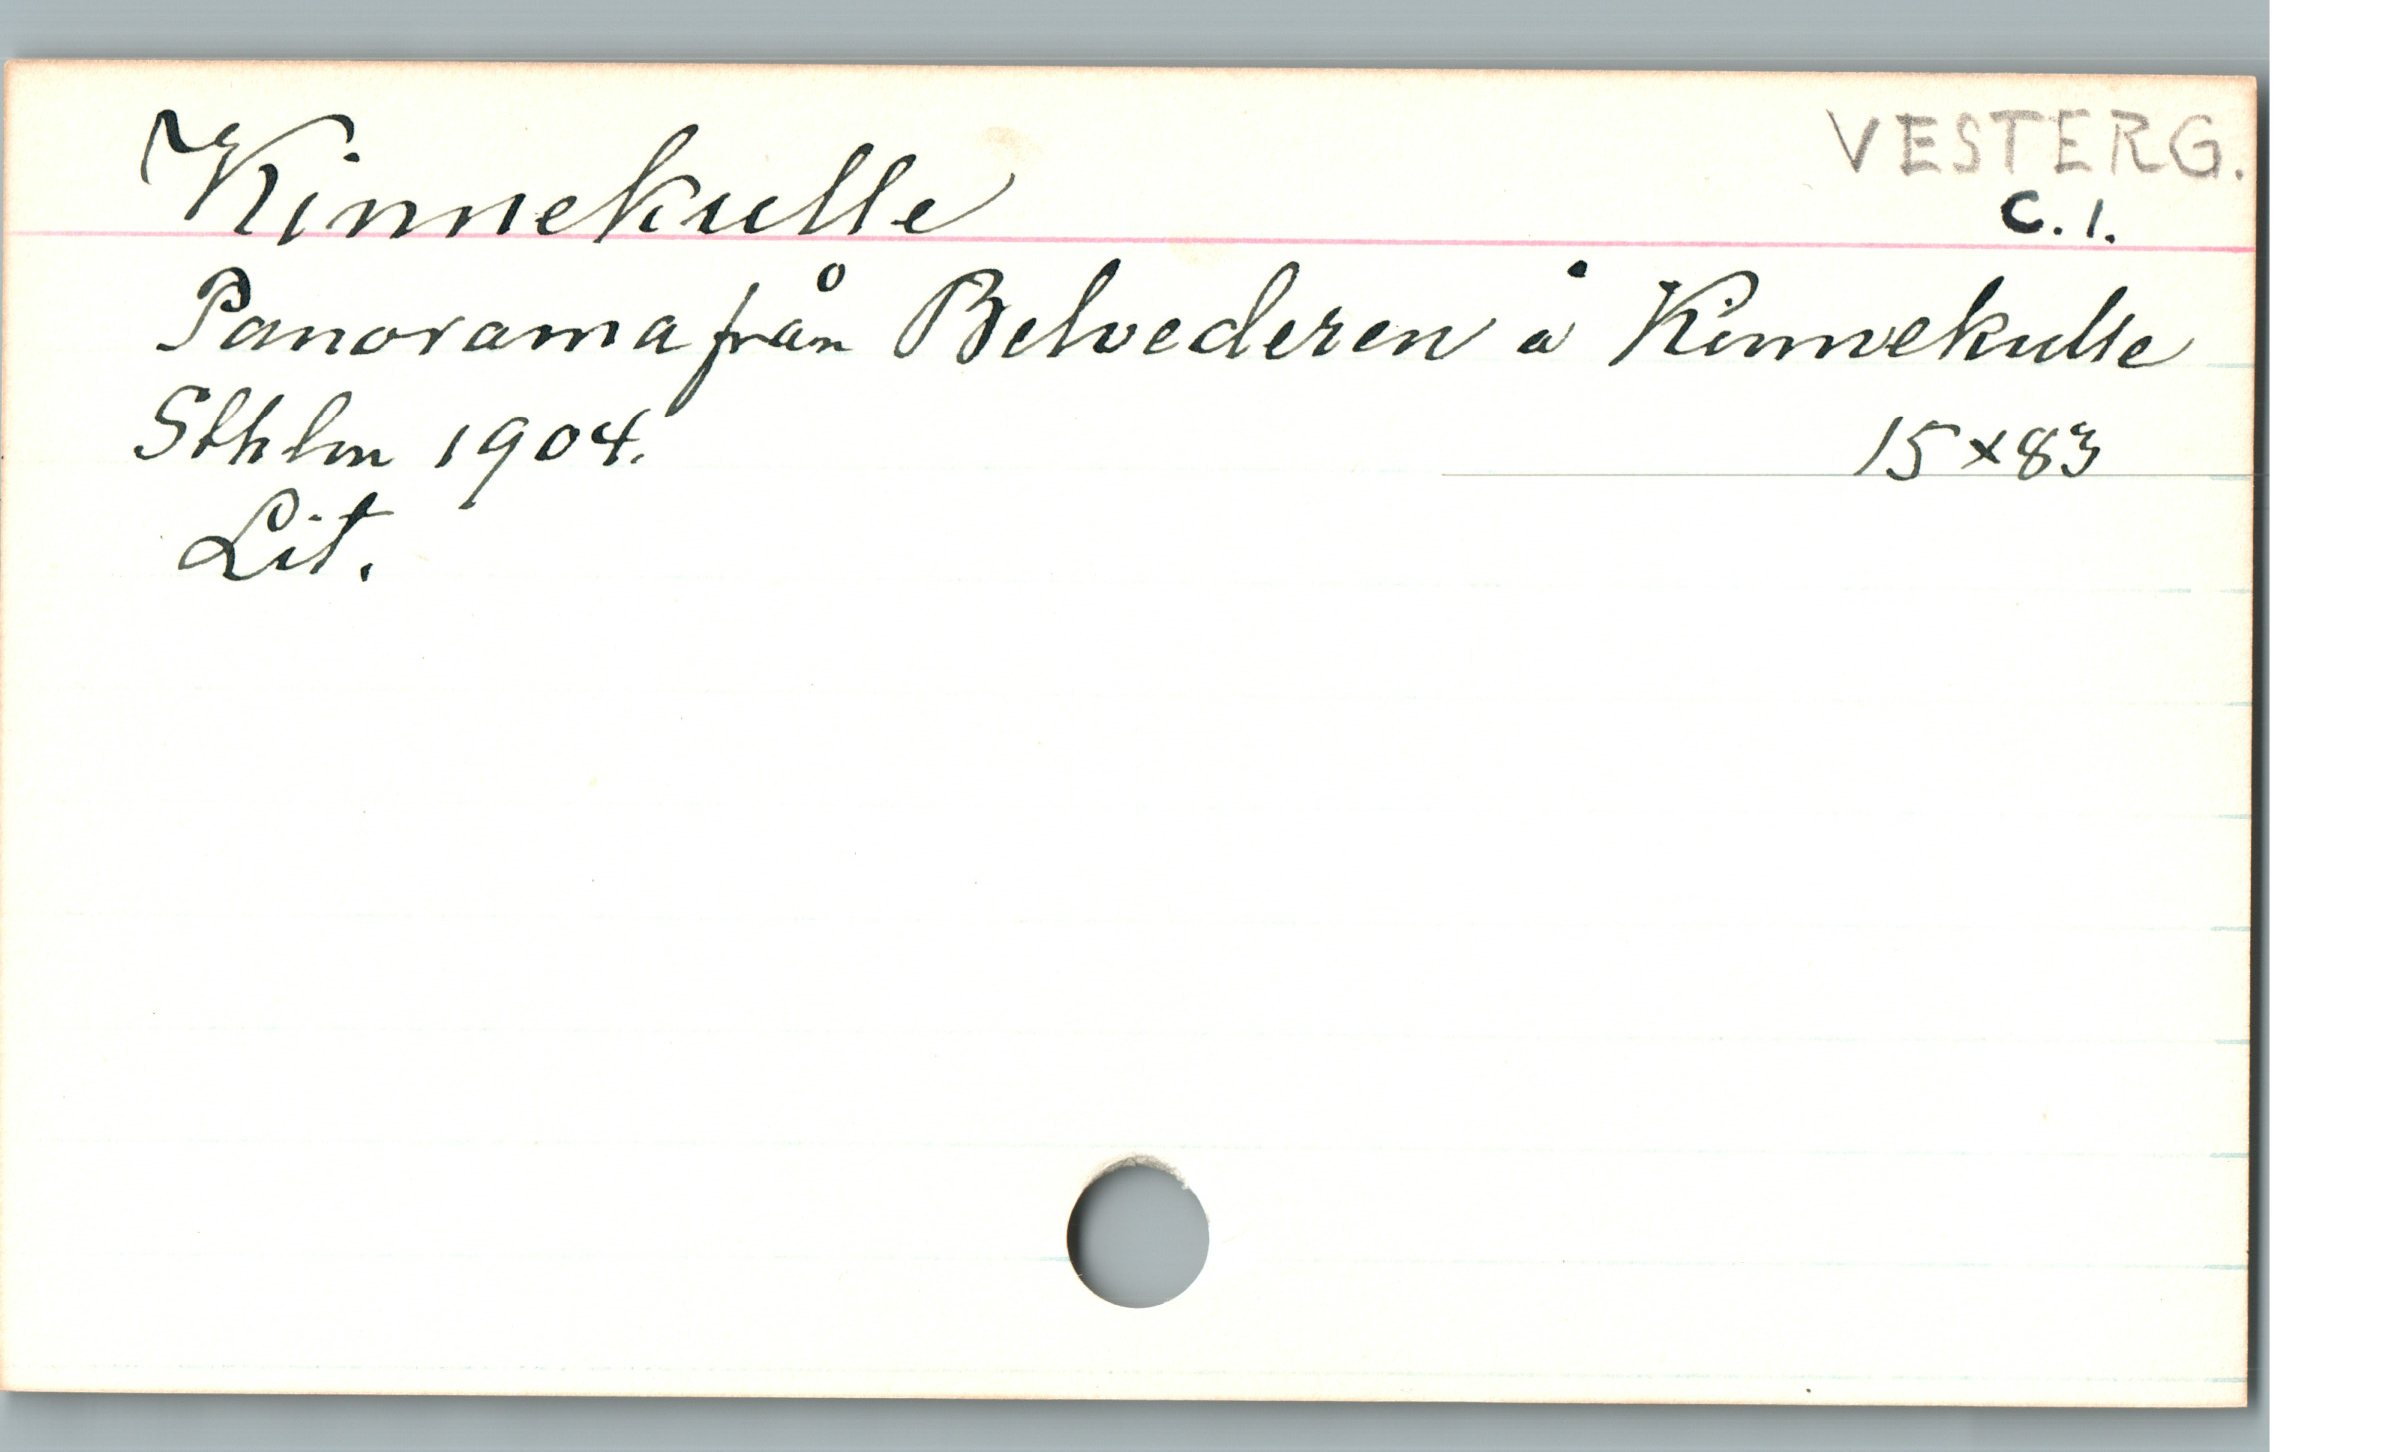 Kinnekulle
VESTERG.
C. 1.
Panorama från Belvederen å Kinnekulle
Sthlm 1904. 15 x 83
Lit.